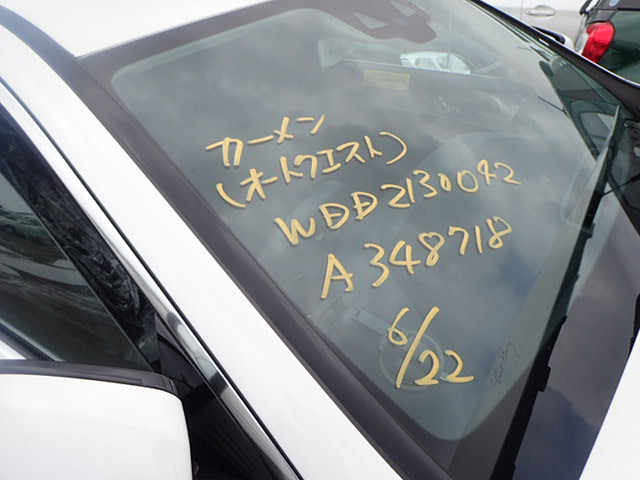 カーメン
(オートクエスト)
WDD2130042
A348718
6/22